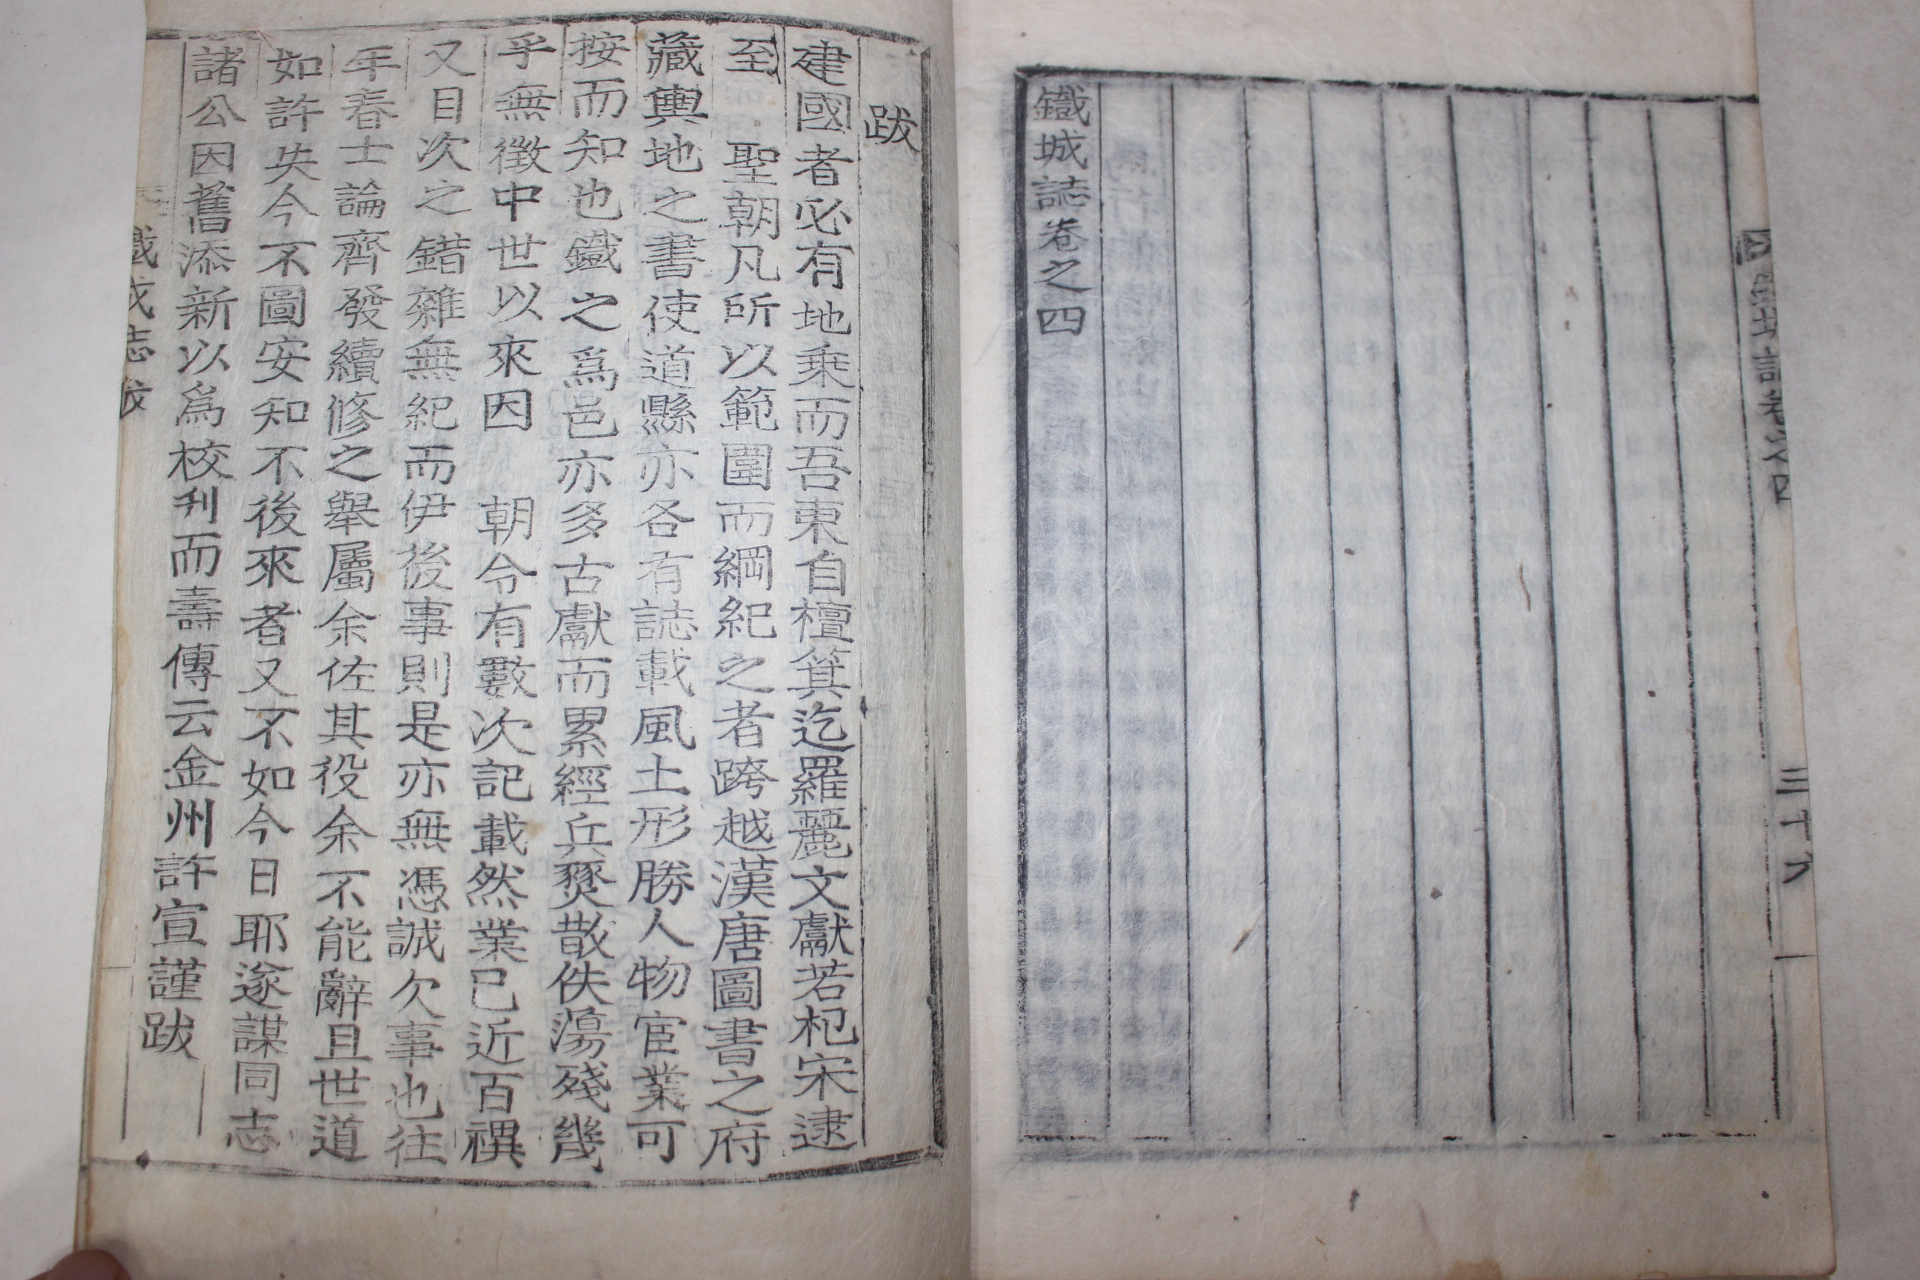 鐵城誌卷之四
三十九
跋
建國者必有地乗而吾東自檀箕迄羅麗文獻若杞宋逮
至 聖朝凡所以範圍而綱紀之者跨越漢唐圖書之府
藏輿地之書使道縣亦各有誌載風土形勝人物宦業可
按而知也鐵之爲邑亦多古獻而累經兵燹散佚蕩殘幾
乎無徵中世以來因 朝令有數次記載然業已近百禩
又目次之錯雜無紀而伊後事則是亦無憑誠欠事也往
年春士論齊發續修之舉屬余佐其役余不能辭且世道
如許失今不圖安知不後來者又不如今日耶遂謀同志
諸公因舊添新以爲校刊而壽傳云金州許宣謹跋
鐵城志 跋